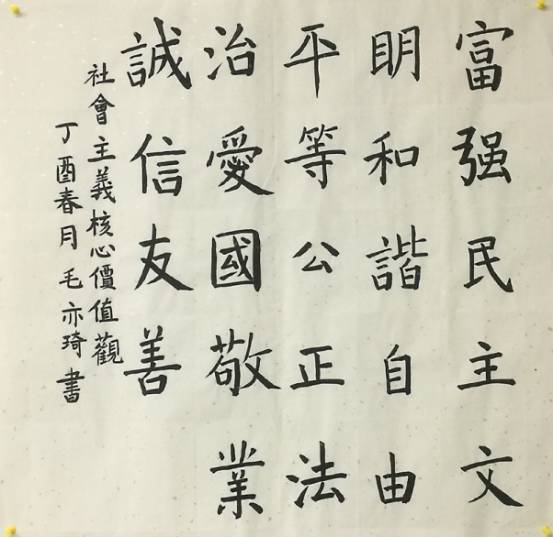 富强民主文
明和諧自由
平等公正法
治愛國敬業
誠信友善
社會主義核心價值觀
丁酉春月毛亦琦書